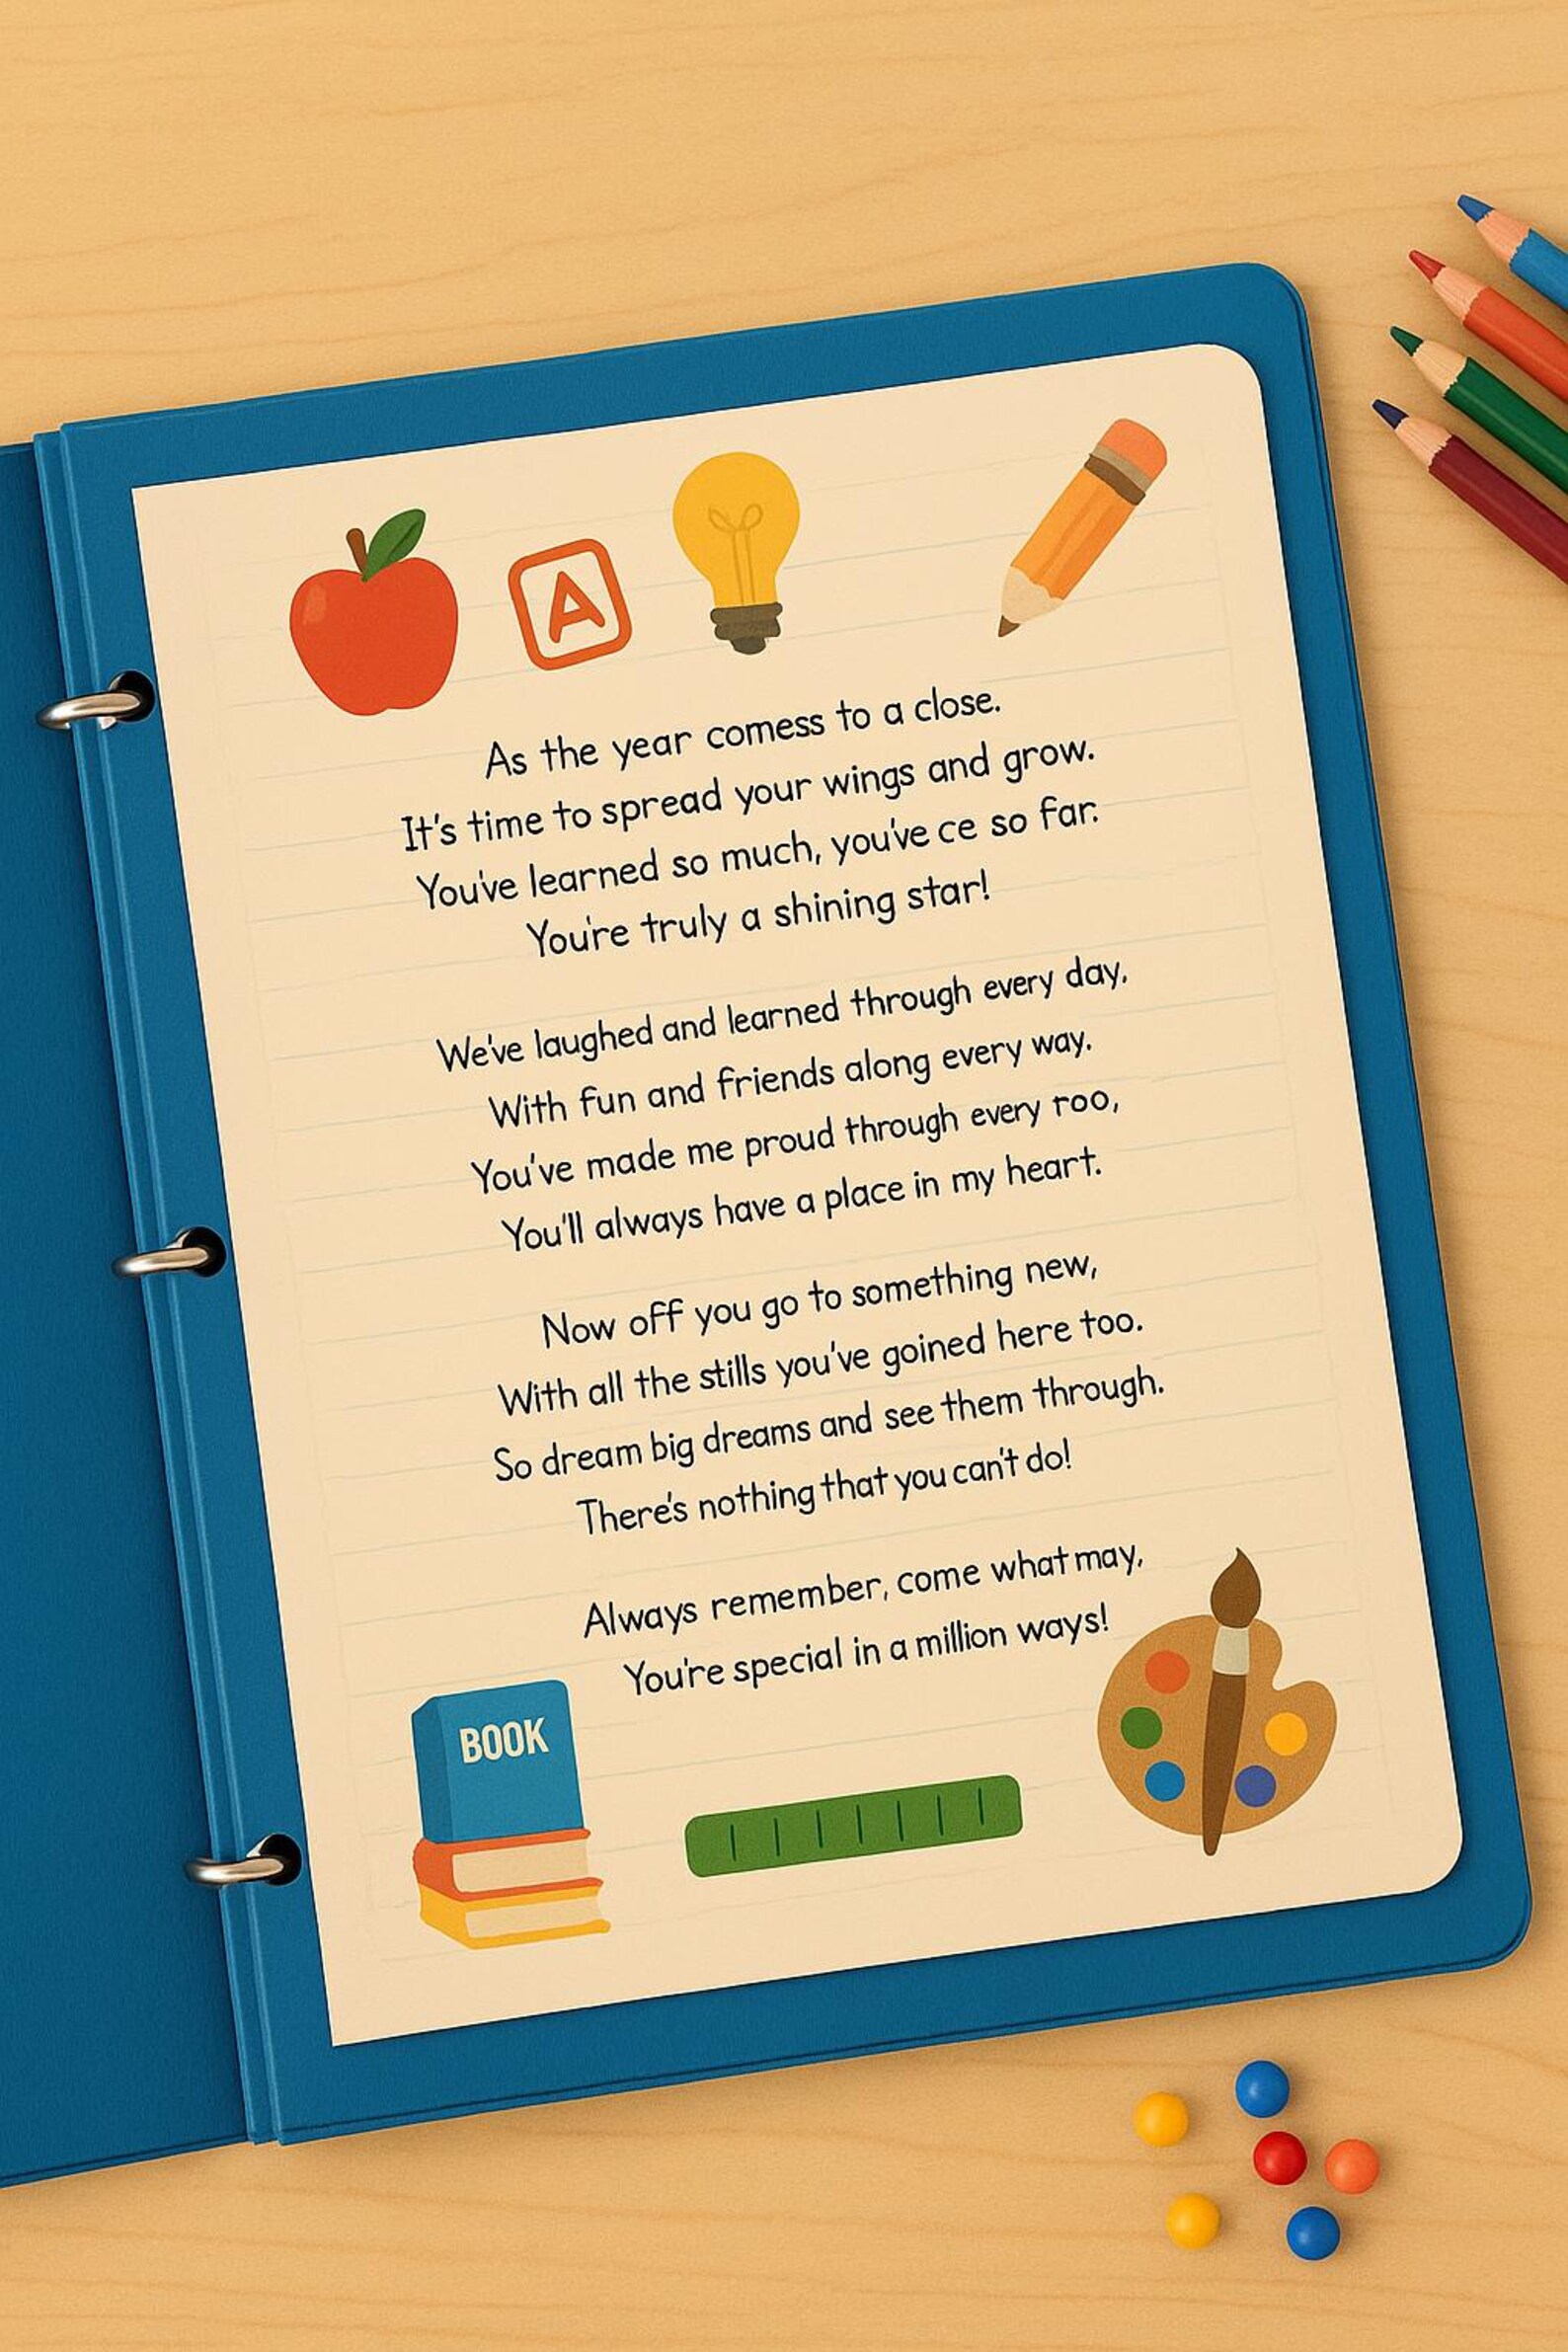 A
As the year comess to a close.
It's time to spread your wings and grow.
You've learned so much, you've ce so far.
You're truly a shining star!
We've laughed and learned through every day,
With fun and friends along every way.
You've made me proud through every roo,
You'll always have a place in my heart.
Now off you go to something new,
With all the stills you've goined here too.
So dream big dreams and see them through.
There's nothing that you can't do!
Always remember, come what may,
You're special in a million ways!
BOOK